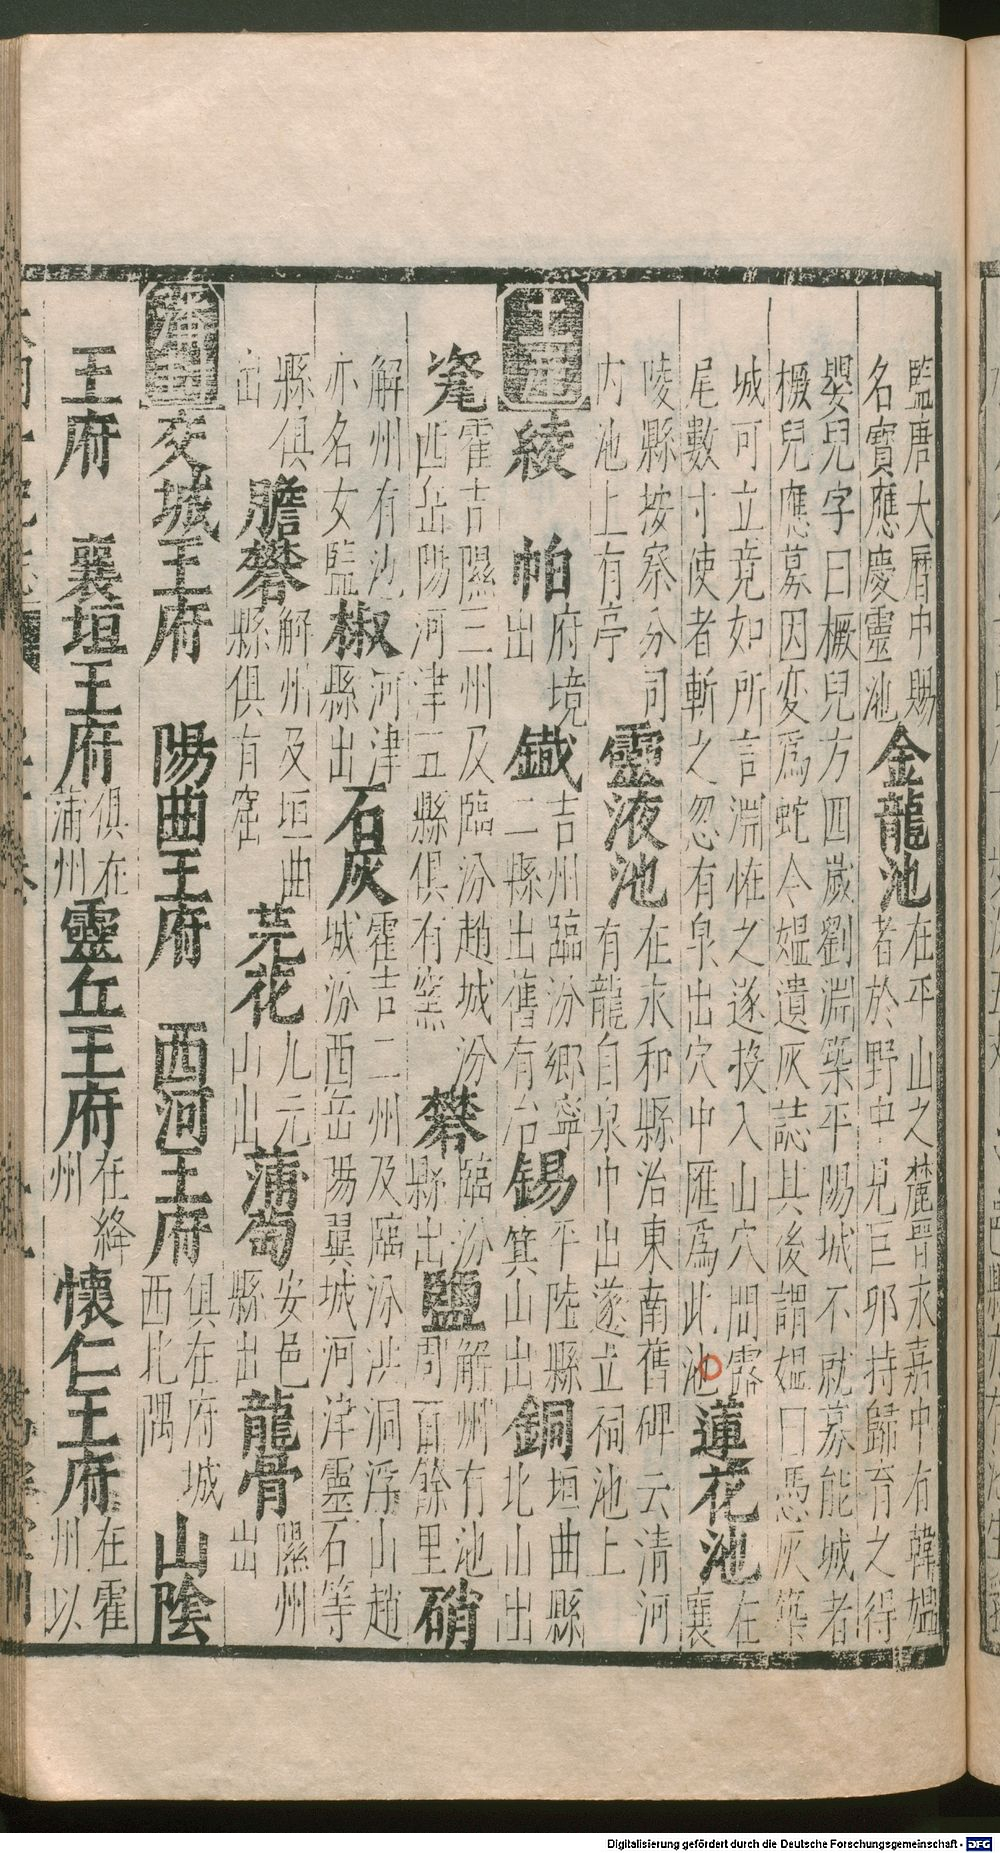 監唐大曆中賜
名寶應慶靈池
金龍池
在平山之麓晉永嘉中有韓媼
者於野中見巨卵持歸育之得
嬰兒字曰橛兒方四歲劉淵築平陽城不就募能城者
橛兒應募因変爲蛇令媼遺灰誌其後謂媼曰憑灰築
城可立竟如所言淵恠之遂投入山穴間露
尾數寸使者斬之忽有泉出穴中匯爲此池
蓮花池
在
襄
陵縣按察分司
内池上有亭
靈液池
在永和縣治東南舊碑云清河
有龍自泉中出遂立祠池上
土産
綾
帕
府境
出
鐵
吉州臨汾鄉寧
二縣出舊有冶
錫
平陸縣
箕山出
銅
垣曲縣
北山出
瓷
霍吉隰三州及臨汾趙城汾
西岳陽河津五縣俱有窯
礬
臨汾
縣出
鹽
解州有池
周百餘里
硝
解州有池
亦名女監
椒
河津
縣出
石灰
霍吉二州及臨汾洪洞浮山趙
城汾西岳陽翼城河津靈石等
縣俱
出
膽礬
解州及垣曲
縣俱有窟
芫花
九元
山出
蒲萄
安邑
縣出
龍骨
隰州
出
藩封
交城王府
陽曲王府
西河王府
俱在府城
西北隅
山陰
王府
襄垣王府
俱在
蒲州
靈丘王府
在絳
州
懷仁王府
在霍
州以
Digitalisierung gefördert durch die Deutsche Forschungsgemeinschaft - DFG